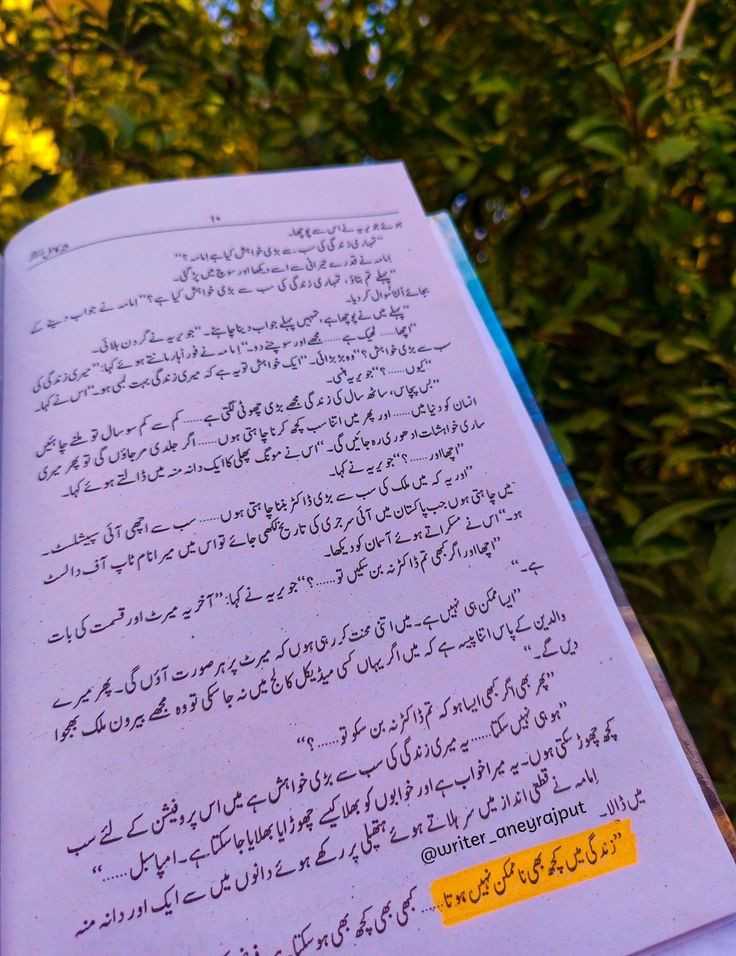 ۱۰
پیر کامل
ہوئے جویریہ نے اس سے پوچھا۔
"تمہاری زندگی کی سب سے بڑی خواہش کیا ہے امامہ؟"
امامہ نے قدرے حیرانی سے اسے دیکھا اور سوچ میں پڑ گئی۔
"پہلے تم بتاؤ، تمہاری زندگی کی سب سے بڑی خواہش کیا ہے؟" امامہ نے جواب دینے کے
بجائے الٹا سوال کر دیا۔
"پہلے میں نے پوچھا ہے، تمہیں پہلے جواب دینا چاہئے۔" جویریہ نے گردن ہلائی۔
"اچھا..... ٹھیک ہے..... مجھے اور سوچنے دو۔" امامہ نے فوراً ہار مانتے ہوئے کہا: "میری زندگی کی
سب سے بڑی خواہش؟" وہ بڑبڑائی۔ "ایک خواہش تو یہ ہے کہ میری زندگی بہت لمبی ہو۔" اس نے کہا۔
"کیوں.....؟" جویریہ ہنسی۔
"بس پچاس، ساٹھ سال کی زندگی مجھے بڑی چھوٹی لگتی ہے..... کم سے کم سو سال تو ملنے چاہئیں
انسان کو دنیا میں..... اور پھر میں اتنا سب کچھ کرنا چاہتی ہوں..... اگر جلدی مر جاؤں گی تو پھر میری
ساری خواہشات ادھوری رہ جائیں گی۔" اس نے مونگ پھلی کا ایک دانہ منہ میں ڈالتے ہوئے کہا۔
"اچھا اور.....؟" جویریہ نے کہا۔
"اور یہ کہ میں ملک کی سب سے بڑی ڈاکٹر بننا چاہتی ہوں..... سب سے اچھی آئی سپیشلسٹ۔
میں چاہتی ہوں جب پاکستان میں آئی سرجری کی تاریخ لکھی جائے تو اس میں میرا نام ٹاپ آف دا لسٹ
ہو۔" اس نے مسکراتے ہوئے آسمان کو دیکھا۔
"اچھا اور اگر کبھی تم ڈاکٹر نہ بن سکیں تو.....؟" جویریہ نے کہا: "آخر یہ میرٹ اور قسمت کی بات
ہے۔"
"ایسا ممکن ہی نہیں ہے۔ میں اتنی محنت کر رہی ہوں کہ میرٹ پر ہر صورت آؤں گی۔ پھر میرے
والدین کے پاس اتنا پیسہ ہے کہ میں اگر یہاں کسی میڈیکل کالج میں نہ جا سکی تو وہ مجھے بیرون ملک بھجوا
دیں گے۔"
"پھر بھی اگر کبھی ایسا ہو کہ تم ڈاکٹر نہ بن سکو تو.....؟"
"ہو ہی نہیں سکتا..... یہ میری زندگی کی سب سے بڑی خواہش ہے میں اس پروفیشن کے لئے سب
کچھ چھوڑ سکتی ہوں۔ یہ میرا خواب ہے اور خوابوں کو بھلا کیسے چھوڑا یا بھلایا جا سکتا ہے۔ امپاسبل....."
امامہ نے قطعی انداز میں سر ہلاتے ہوئے ہتھیلی پر رکھے ہوئے دانوں میں سے ایک اور دانہ منہ
میں ڈالا۔
@writer_aneyrajput
"زندگی میں کچھ بھی ناممکن نہیں ہوتا..... کبھی بھی کچھ بھی ہو سکتا